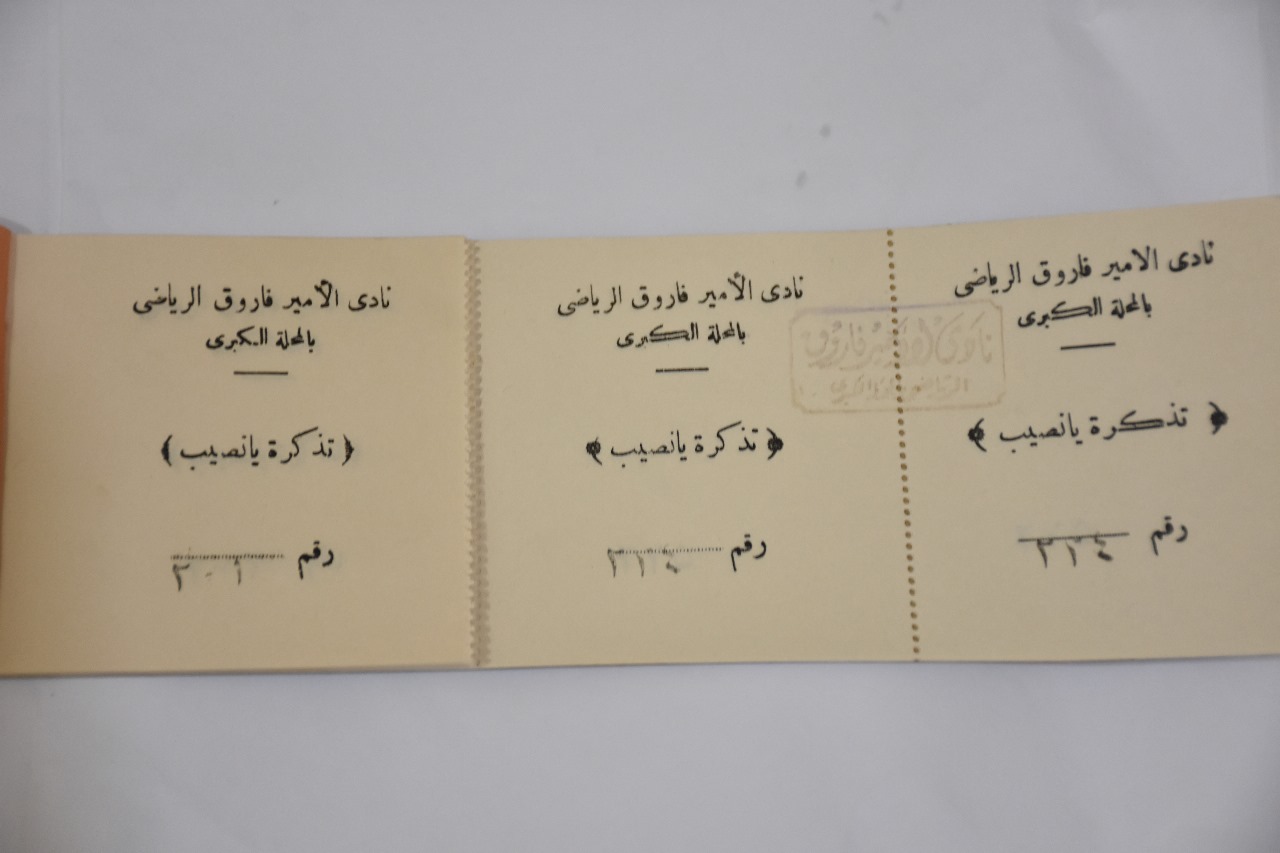 نادى الامير فاروق الرياضى
بالمحلة الكبرى
﴿ تذكرة يانصيب ﴾
رقم ٢١٤
نادى الأمير فاروق الرياضى
بالمحلة الكبرى
﴿ تذكرة يانصيب ﴾
رقم ٢١٤
نادى الأمير فاروق الرياضى
بالمحلة الكبرى
( تذكرة يانصيب )
رقم ٢٠١
نادى الامير فاروق